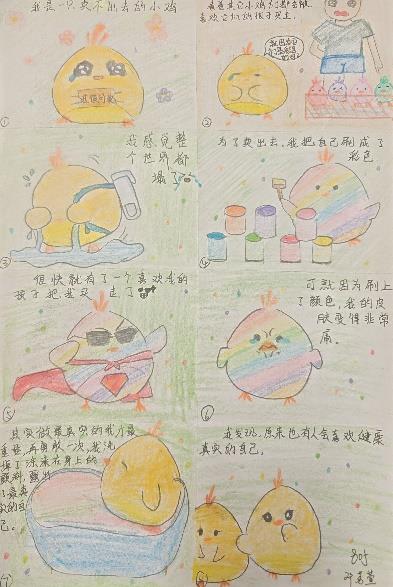 我是一只卖不出去的小鸡
①
看着其它小鸡们都去被
喜欢它们的孩子买走
②
我感觉整
个世界都
塌了
③
为了卖出去,我把自己刷成了
彩色
④
但很快就有了一个喜欢我的
孩子把我买走了
⑤
可就因为刷上
了颜色,我的皮
肤变得非常
痛。
⑥
其实做最真实的我才最
重要,再勇敢一次,我洗
掉了涂在身上的
颜料,
了最真
实的自
己。
⑦
我发现,原来也有人会喜欢健康
真实的自己。
805